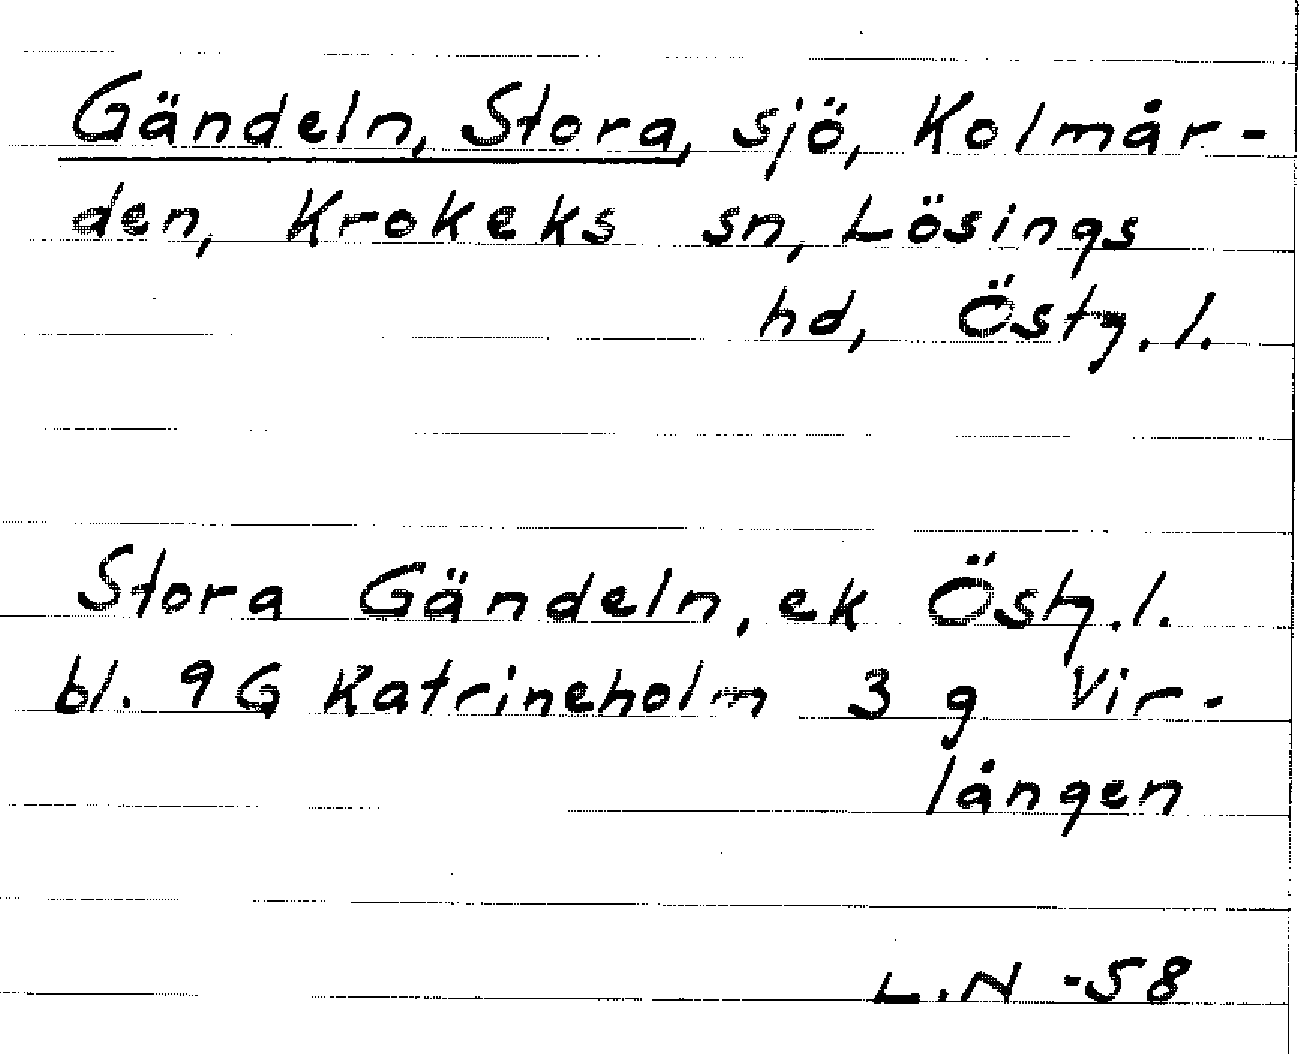 Gändeln, Stora, sjö, Kolmår-
den, Krokeks sn, Lösings
hd, Östg.l.
Stora Gändeln, ek Östg.l.
bl. 9G Katrineholm 3 g Vir-
lången
L.N -58